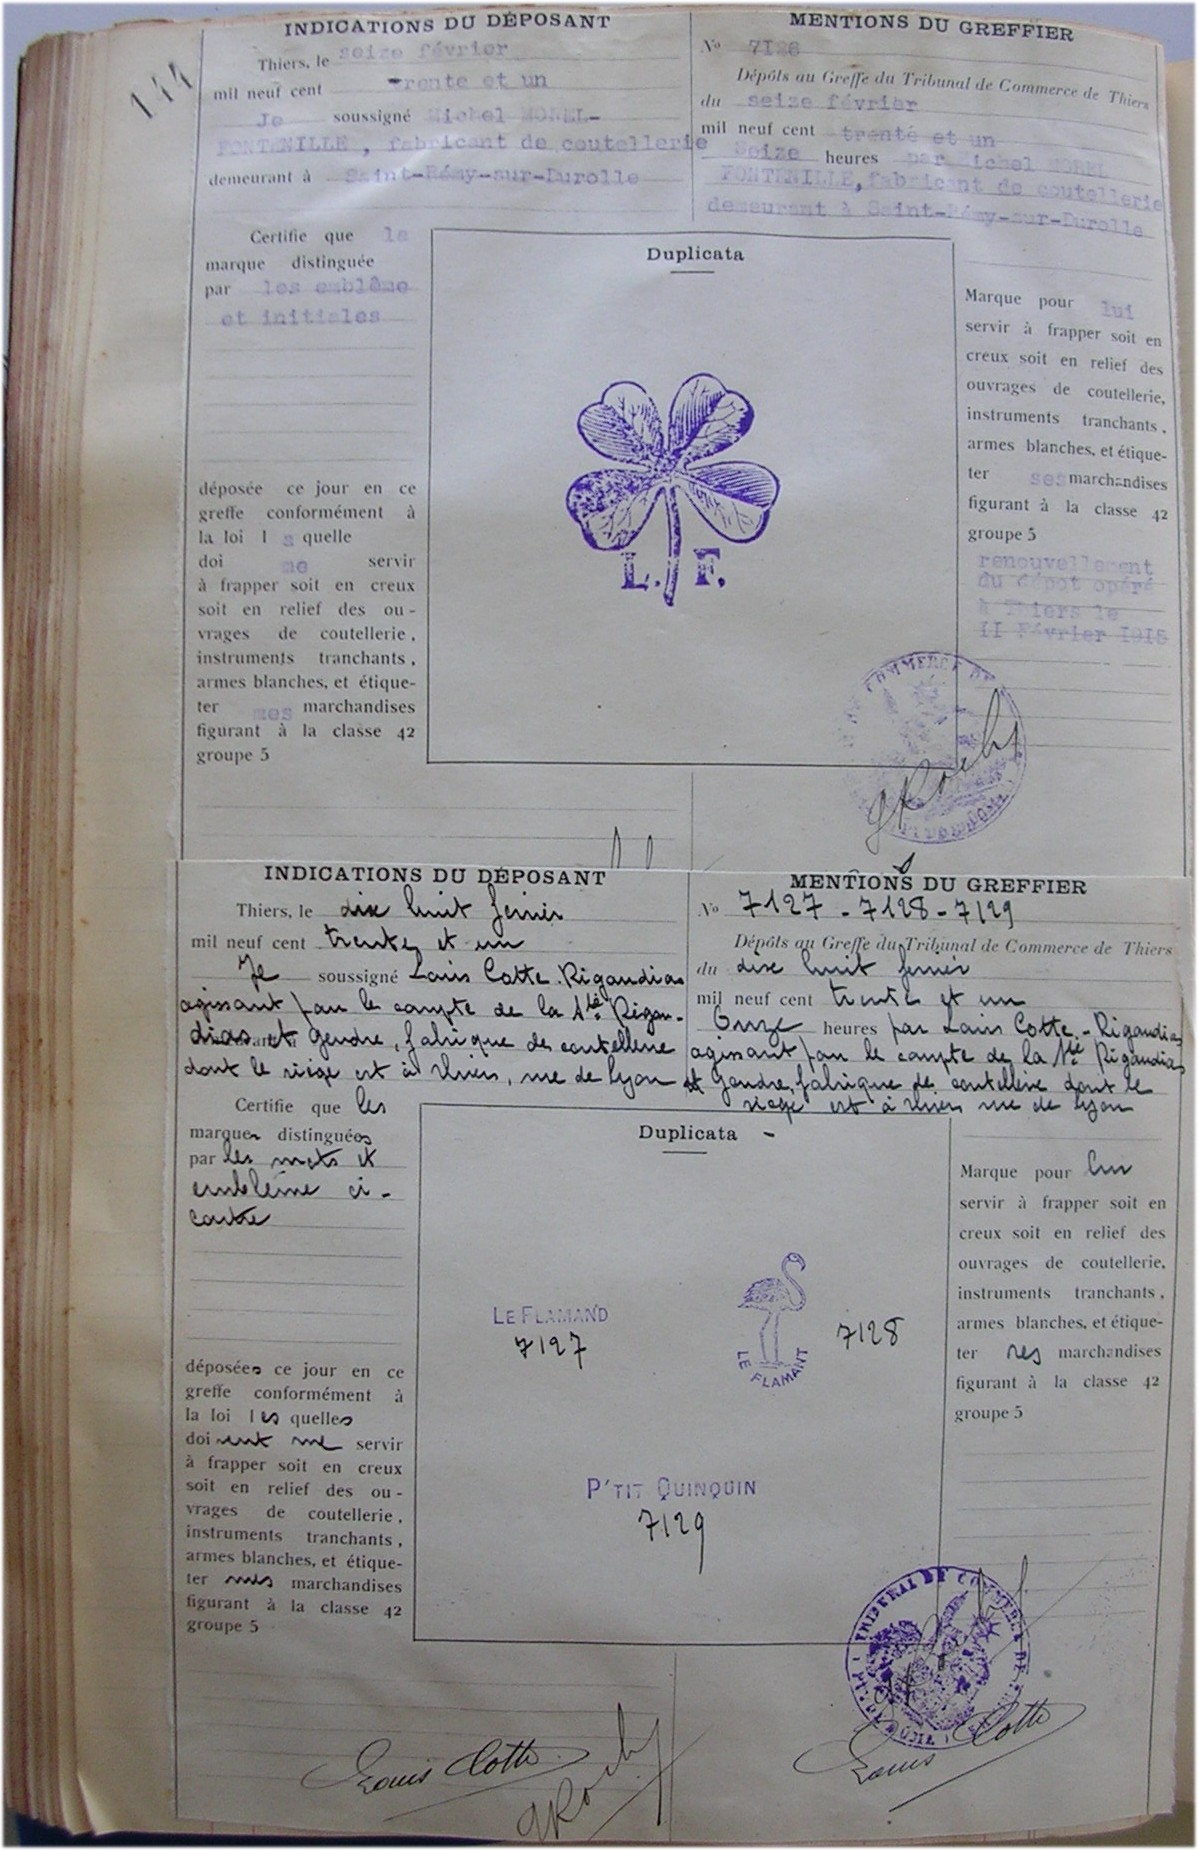 144
INDICATIONS DU DÉPOSANT
Thiers, le seize février
mil neuf cent trente et un
Je soussigné Michel MOREL-
FONTENILLE, fabricant de coutellerie
demeurant à Saint-Rémy-sur-Durolle
MENTIONS DU GREFFIER
No 7126
Dépôts au Greffe du Tribunal de Commerce de Thiers
du seize février
mil neuf cent trente et un
Seize heures par Michel MOREL
FONTENILLE, fabricant de coutellerie
demeurant à Saint-Rémy-sur-Durolle
Certifie que la
marque distinguée
par les emblême
et initiales
déposée ce jour en ce
greffe conformément à
la loi l a quelle
doi me servir
à frapper soit en creux
soit en relief des ou-
vrages de coutellerie,
instruments tranchants,
armes blanches, et étique-
ter mes marchandises
figurant à la classe 42
groupe 5
Duplicata
L. F.
Marque pour lui
servir à frapper soit en
creux soit en relief des
ouvrages de coutellerie,
instruments tranchants,
armes blanches, et étique-
ter ses marchandises
figurant à la classe 42
groupe 5
renouvellement
du dépot opéré
à Thiers le
II Février 1916
COMMERCE DE
GRoch
INDICATIONS DU DÉPOSANT
Thiers, le dix huit fevrier
mil neuf cent trente et un
Je soussigné Louis Cotte-Rigaudias
agissant pour le compte de la Sté Rigau-
dias et Gendre, fabrique de coutellerie
dont le siège est à Thiers, rue de Lyon
MENTIONS DU GREFFIER
Nos 7127 - 7128 - 7129
Dépôts au Greffe du Tribunal de Commerce de Thiers
du dix huit fevrier
mil neuf cent trente et un
Onze heures par Louis Cotte-Rigaudias
agissant pour le compte de la Sté Rigaudias
et Gendre, fabrique de coutellerie dont le
siège est à Thiers rue de Lyon
Certifie que les
marques distinguées
par les mots et
emblême ci-
contre
déposées ce jour en ce
greffe conformément à
la loi les quelles
doivent me servir
à frapper soit en creux
soit en relief des ou-
vrages de coutellerie,
instruments tranchants,
armes blanches, et étique-
ter mes marchandises
figurant à la classe 42
groupe 5
Duplicata
LE FLAMAND
7127
LE FLAMANT
7128
P'TIT QUINQUIN
7129
Marque pour lui
servir à frapper soit en
creux soit en relief des
ouvrages de coutellerie,
instruments tranchants,
armes blanches, et étique-
ter ses marchandises
figurant à la classe 42
groupe 5
TRIBUNAL DE COMMERCE DE
Louis Cotte
GRoch
Louis Cotte